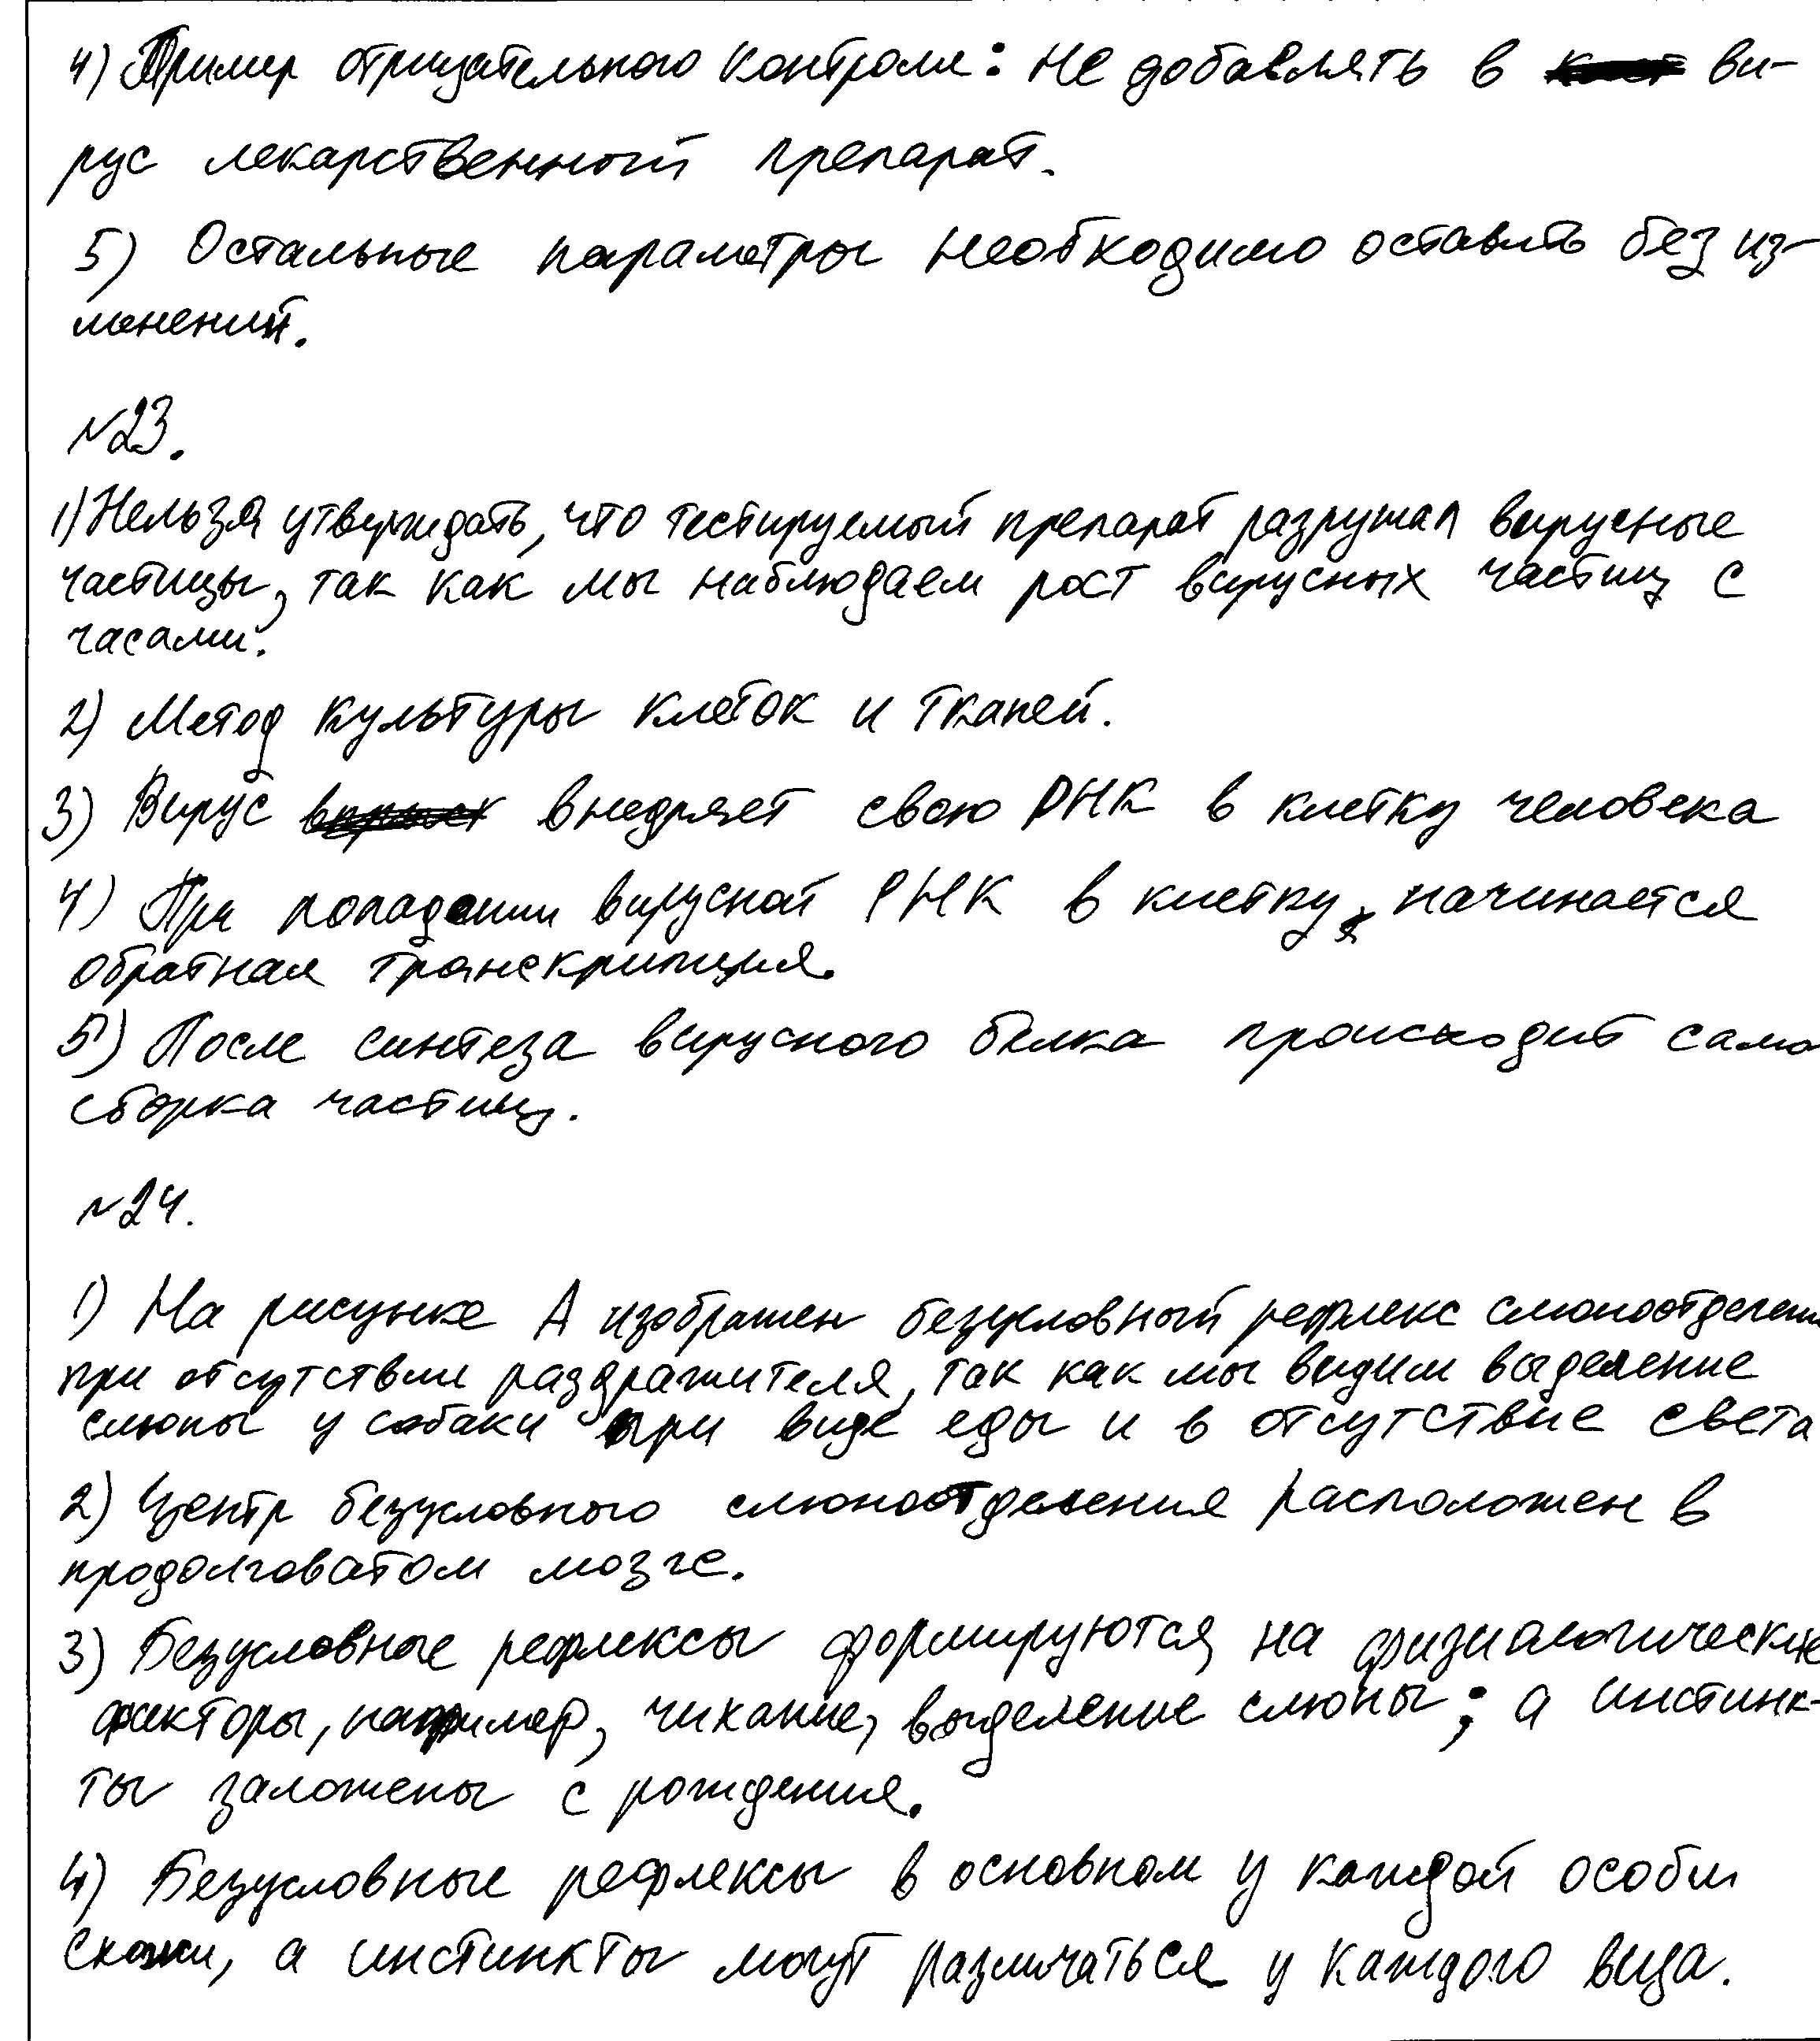 4) Пример отрицательного контроля: не добавлять в ви-
рус лекарственный препарат.
5) Остальные параметры необходимо оставить без из-
менений.
№23.
1) Нельзя утверждать, что тестируемый препарат разрушал вирусные
частицы, так как мы наблюдаем рост вирусных частиц с
часами.
2) Метод культуры клеток и тканей.
3) Вирус внедряет свою РНК в клетку человека
4) При попадании вирусной РНК в клетку, начинается
обратная транскрипция.
5) После синтеза вирусного белка происходит само
сборка частиц.
№24.
1) На рисунке А изображен безусловный рефлекс слюноотделения
при отсутствии раздражителя, так как мы видим выделение
слюны у собаки при виде еды и в отсутствие света
2) Центр безусловного слюноотделения расположен в
продолговатом мозге.
3) Безусловные рефлексы формируются на физиологические
факторы, например, чихание, выделение слюны; а инстинк-
ты заложены с рождения.
4) Безусловные рефлексы в основном у каждой особи
схожи, а инстинкты могут различаться у каждого вида.